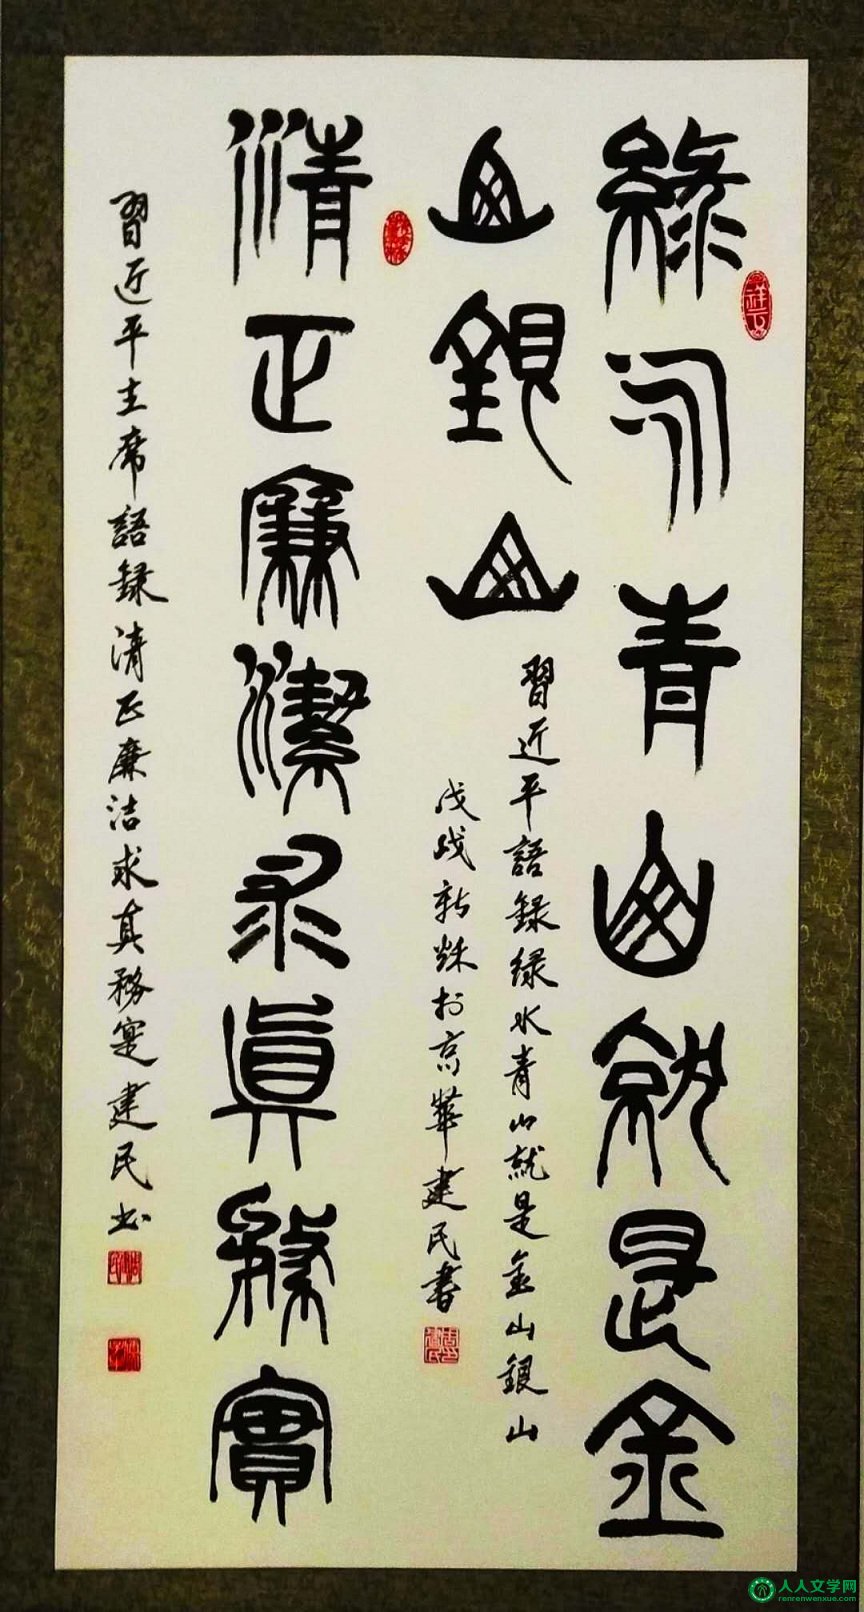 綠水青山就是金
山銀山
習近平語録緑水青山就是金山銀山
戊戌新秌扵京華建民書
清正廉潔求眞務實
習近平主席語録清正廉洁求真務寔建民书
祥云
人人文学网
renrenwenxue.com